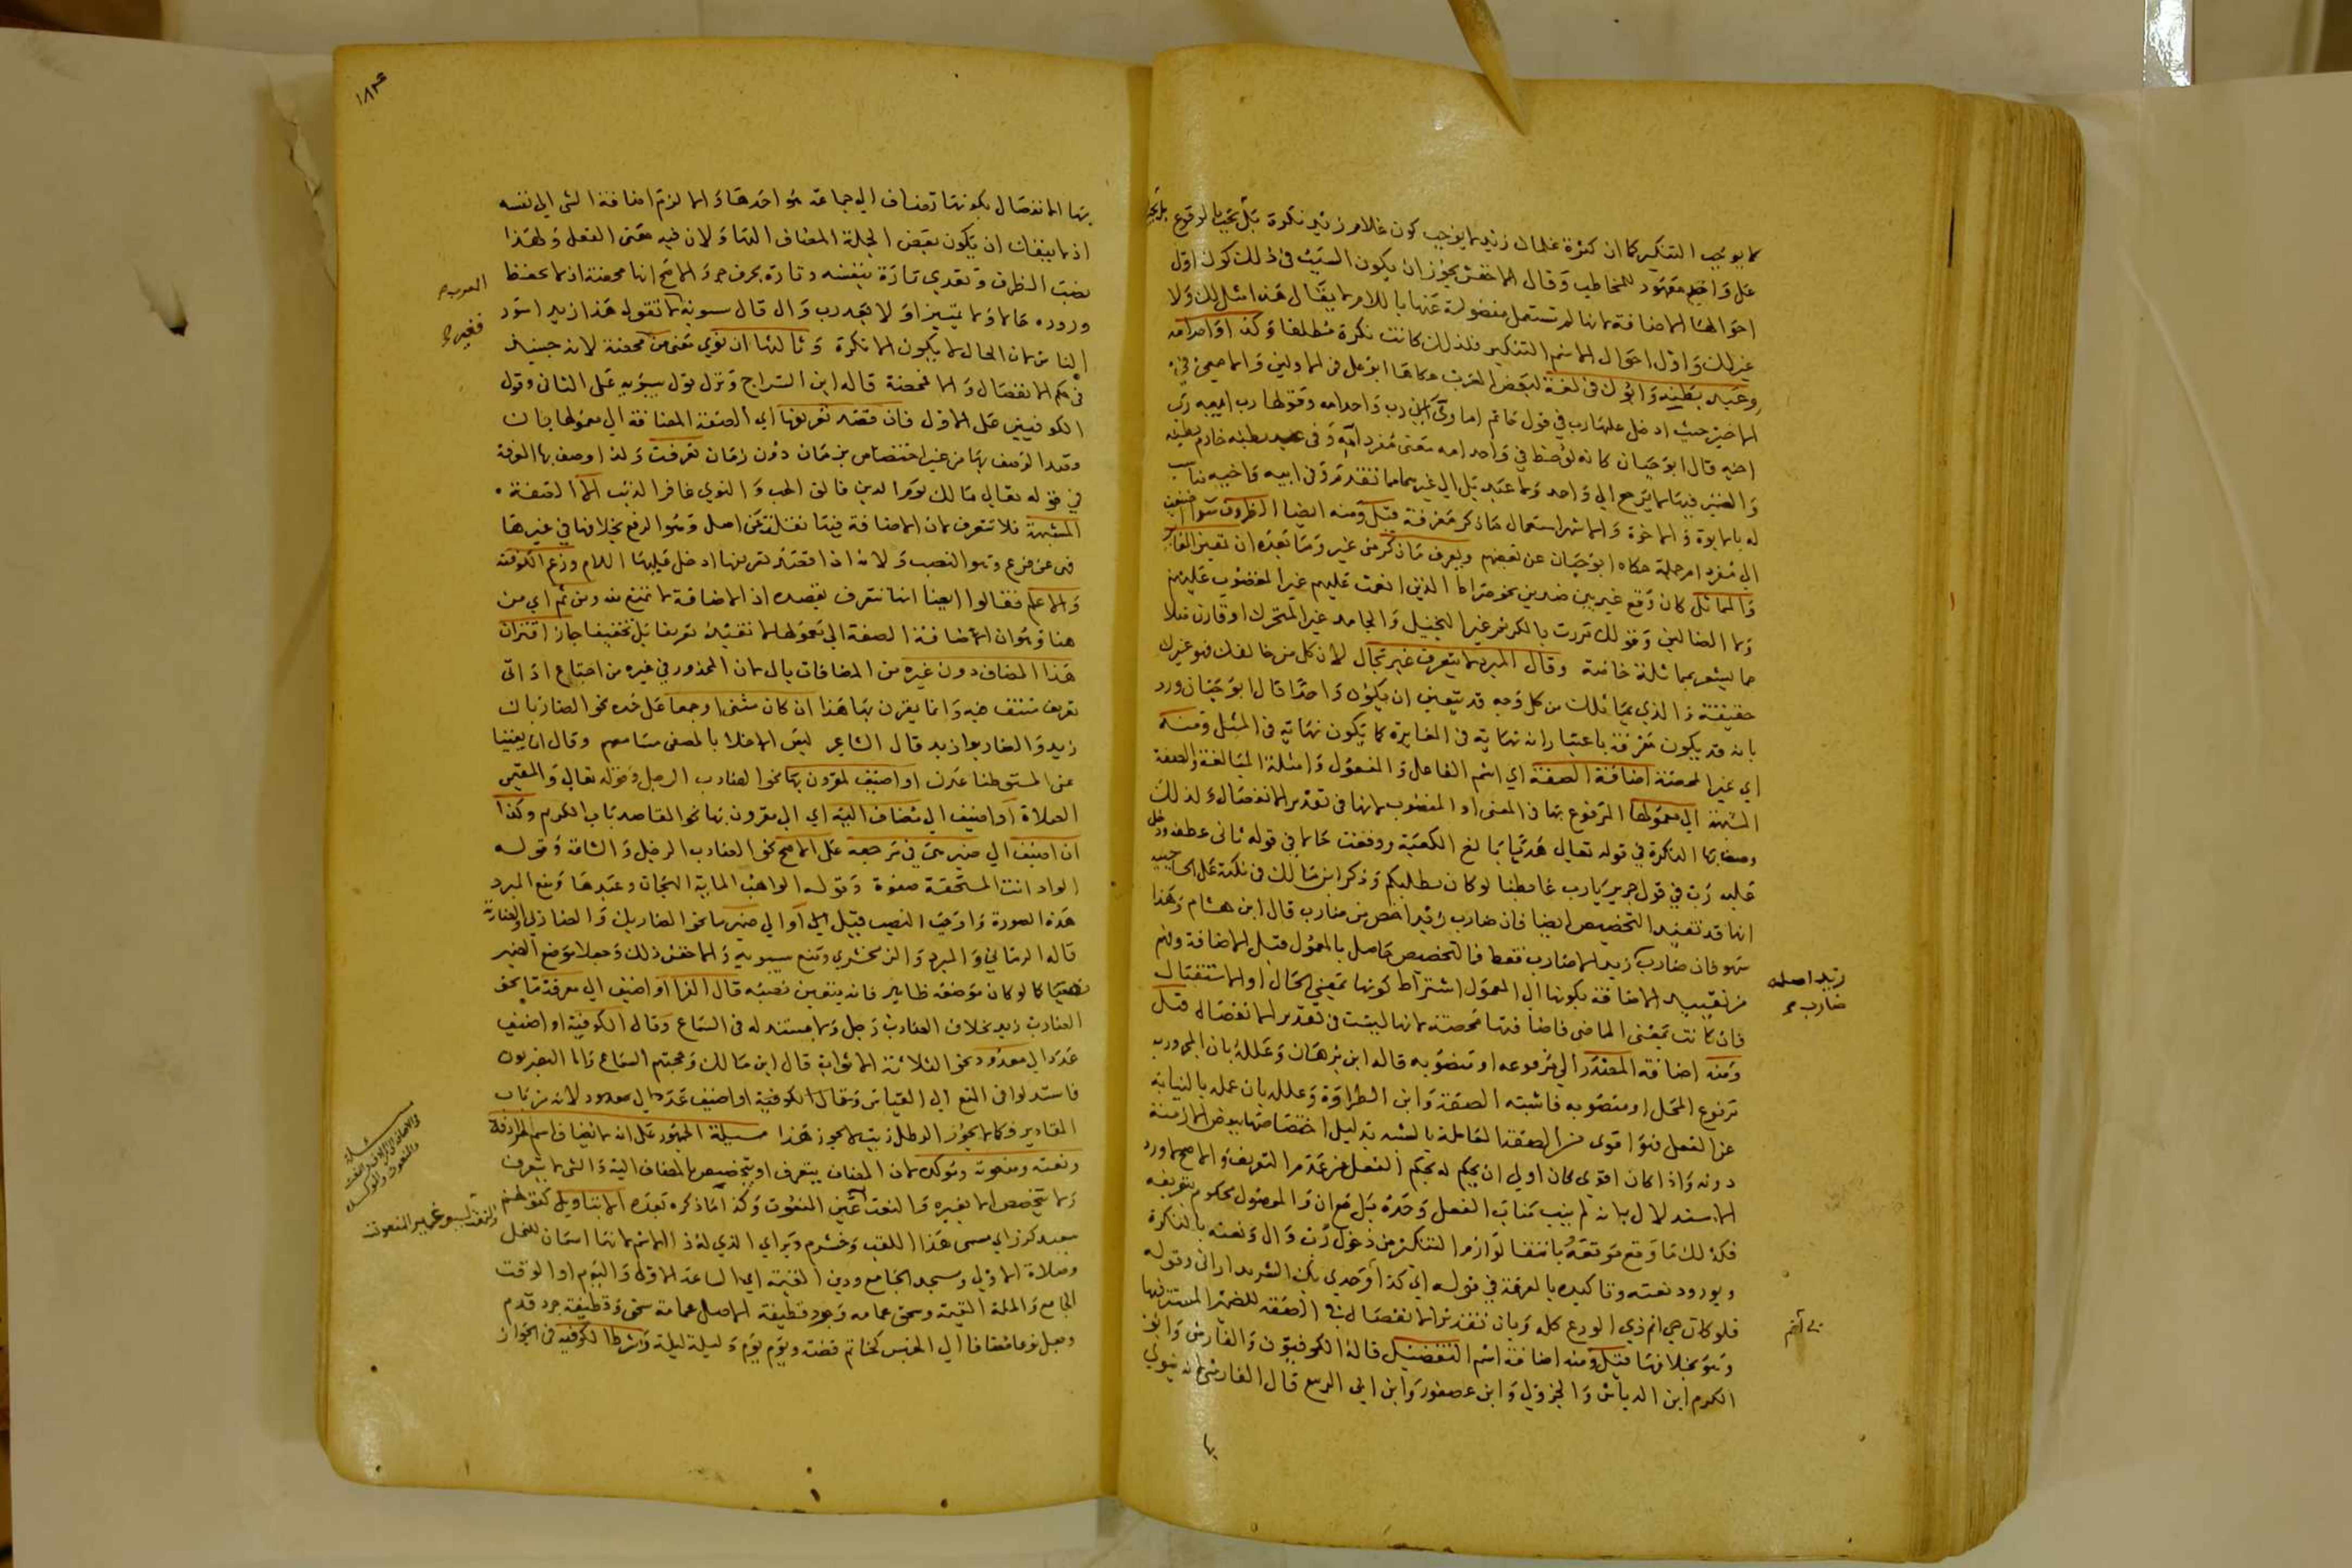 لا يوجب التنكير كما ان كثرة غلمان زيد لا يوجب كون غلام زيد نكرة بل يجب بالوقوع
على واحد معهود للمخاطب وقال الاخفش يجوز ان يكون السبب في ذلك كون اول
احوالهما الاضافة لانها لم تستعمل مفصولة عنها باللام لا يقال هذا مثل لك ولا
غير لك واول احوال الاسم التنكير فلذلك كانت نكرة مطلقا وكذا واحد امه
وعبد بطنه وابوك في لغة لبعض العرب حكاها ابو علي في الاولين والاصمعي في
الاخير حيث ادخل عليها رب في قول حاتم اماوي اني رب واحد امه وقولها رب ابيه رب
اخيه قال ابو حيان كانه لوحظ في واحد امه معنى مفرد امه وفي عبد بطنه خادم بطنه
والضمير فيهما لا يرجع الى واحد ولا عبد بل الى غيرهما مما تقدم وفي ابيه واخيه مناسب
له بالابوة والاخوة والاشهر استعمال ما ذكر معرفة قيل ومنه ايضا الظروف سوا اضيفت
الى مفرد ام جملة حكاه ابو حيان عن بعضهم ويعرف ما ذكر من غير وما بعده ان تعين المغاير
والمماثل كان وقع غير بين ضدين نحو صراط الذين انعمت عليهم غير المغضوب عليهم
ولا الضالين وقولك مررت بالكريم غير البخيل والجامد غير المتحرك او قارن مثلا
ما يشعر بمماثلة خاصة وقال المبرد لا يتعرف غير بحال لان كل من خالفك فهو غيرك
حقيقة والذي يماثلك من كل وجه قد يتعين ان يكون واحدا قال ابو حيان ورد
بانه قد يكون معرفة باعتبار انه نهاية في المغايرة كما يكون نهاية في المثل ومنه
اي غير المحضة اضافة الصفة اي اسم الفاعل والمفعول وامثلة المبالغة والصفة
المشبهة الى معمولها المرفوع بها في المعنى او المنصوب لانها في تقدير الانفصال ولذلك
وصف بها النكرة في قوله تعالى هديا بالغ الكعبة ووقعت حالا في قوله ثاني عطفه ودخل
عليه رب في قول جرير يا رب غابطنا لو كان يطلبكم وذكر ابن مالك في نكته على الحاجبية
انها قد تفيد التخصيص ايضا فان ضارب زيد اخص من ضارب قال ابن هشام وهذا
سهو فان ضارب زيد اصله ضارب زيدا لا ضارب فقط فالتخصيص حاصل بالمعمول قبل الاضافة وفهم
من تقييد الاضافة بكونها الى المعمول اشتراط كونها بمعنى الحال او الاستقبال
فان كانت بمعنى الماضي فاضافتها محضة لانها ليست في تقدير الانفصال قيل
ومنه اضافة المصدر الى مرفوعه او منصوبه قاله ابن برهان وعلله بان المجرور به
مرفوع المحل او منصوبه فاشبه الصفة وابن الطراوة وعلله بان عمله بالنيابة
عن الفعل فهو اقوى من الصفة العاملة بالشبه بدليل اختصاصها ببعض الازمنة
دونه واذا كان اقوى كان اولى ان يحكم له بحكم الفعل من عدم التعريف والاصح لا ورد
الاستدلال بانه لم ينب مناب الفعل وحده بل مع ان والموصول محكوم بتعريفه
فكذلك ما وقع موقعه وبانتفا لوازم التنكير من دخول رب وال ونعته بالنكرة
وبورود نعته وتاكيده بالمعرفة في قوله اني كذا وجدي بك الشديد اراني وقوله
فلو كان حبي ام ذي الودع كله وبان تقدير الانفصال في الصفة للضمير المستتر فيها
وهو بخلافها قيل ومنه اضافة اسم التفضيل قاله الكوفيون والفارسي وابو
الكرم ابن الدباس والجزولي وابن عصفور وابن ابي الربيع قال الفارسي لانه ينوي
بها
بها الانفصال لكونها تضاف الى جماعة هو احدها والا لزم اضافة الشي الى نفسه
اذ لا ينفك ان يكون بعض الجملة المضاف اليها ولان فيه معنى الفعل ولهذا
نصب الظرف وتعدى تارة بنفسه وتارة بحرف جر والاصح انها محضة اذ لا يحفظ
وروده حالا ولا تمييزا ولا بعد رب وال قال سيبويه لا تقول هذا زيد اسود
الناس لان الحال لا يكون الا نكرة وثالثها ان نوي معنى من محضة لانه حينئذ
في حكم الانفصال والا فمحضة قاله ابن السراج ونزل قول سيبويه على الثاني وقول
الكوفيين على الاول فان قصد تعريفها اي الصفة المضافة الى معمولها بان
وقصد الوصف بها من غير اختصاص بزمان دون زمان تعرفت ولذا وصف بها المعرفة
في قوله تعالى مالك يوم الدين فالق الحب والنوى غافر الذنب الا الصفة
المشبهة فلا تتعرف لان الاضافة فيها نقلة عن اصل وهو الرفع بخلافها في غيرها
فهى عن فرع وهو النصب ولانه اذا قصد تعريفها ادخل عليها اللام وزعم الكوفية
والاعلم فقالوا ايضا انها تتعرف بقصده اذ الاضافة لا تمنع منه ومن ثم اي من
هنا وهو ان اضافة الصفة الى معمولها لا تفيد تعريفا بل تخفيفا جاز اقتران
هذا المضاف دون غيره من المضافات بال لان المحذور في غيره من اجتماع اداتي
تعريف منتف فيه وانما يقرن بها هذا ان كان مثنى او جمعا على حده نحو الضاربا
زيد والضاربوا زيد قال الشاعر ليس الاخلا بالمصغي مسامعهم وقال ان يغنيا
عني المستوطنا عدن او اضيف لمقرون بها نحو الضارب الرجل وقوله تعالى والمقيمي
الصلاة او اضيف الى مضاف اليه اي الى مقرون بها نحو القاصد باب الكرم وكذا
ان اضيف الى ضمير هي في مرجعه على الاصح نحو الضارب الرجل والشاتمه وقوله
الود انت المستحقة صفوه وقوله الواهب الماية الهجان وعبدها ومنع المبرد
هذه الصورة واوجب النصب قيل او الى ضمير ما نحو الضاربك والضاربي والضاربه
قاله الرماني والمبرد والزمخشري ومنع سيبويه والاخفش ذلك وجعلا موضع الضمير
نصبا كما لو كان موضعه ظاهر فانه يتعين نصبه قال الفرا او اضيف الى معرفة ما نحو
الضارب زيد بخلاف الضارب رجل ولا مستند له في السماع وقال الكوفية او اضيف
عددا الى معدود نحو الثلاثة الاثواب قال ابن مالك وحجتهم السماع واما البصريون
فاستدلوا في المنع الى القياس وقال الكوفية او اضيف عدد الى معدود لانه من باب
المقادير وكما لا يجوز الرطل زيت لا يجوز هذا مسئلة الجمهور على انه لا يضاف اسم لمرادفه
ونعته ومنعوته ومؤكده لان المضاف يتعرف او يتخصص بالمضاف اليه والشي لا يتعرف
ولا يتخصص الا بغيره والنعت عين المنعوت وكذا ما ذكره بعده الا بتاويل كقولهم
سعيد كرز اي مسمى هذا اللقب وخشرم دبر اي الذي له ذا الاسم لانها اسمان للنحل
وصلاة الاولى ومسجد الجامع ودين القيمة اي الساعة الاولى واليوم او الوقت
الجامع والملة القيمة وسحق عمامة وجرد قطيفة الاصل عمامة سحق وقطيفة جرد قدم
وجعل نوعا مضافا الى الجنس كخاتم فضة ويوم يوم وليلة ليلة وشرط الكوفية في الجواز
زيد اصله
ضارب
العرب
فغيره
مسئلة
والنعت ليس غير المنعوت